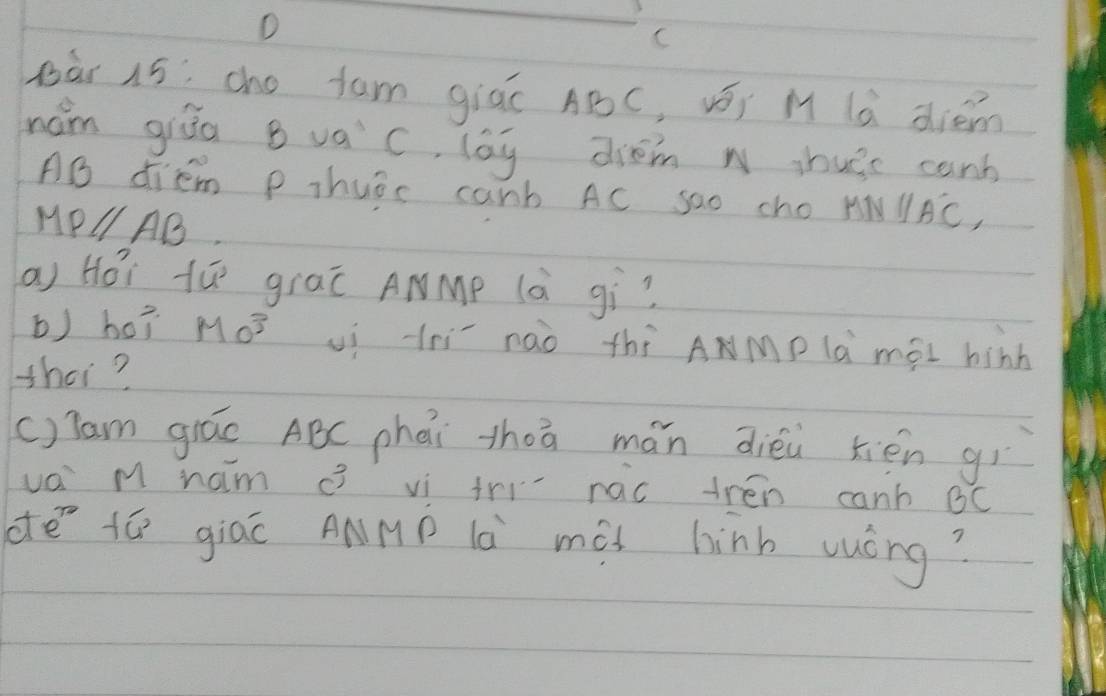 D
C
Bài 15: cho tam giác ABC, với M là điểm
nằm giữa B và C. lấy điểm N thuộc cạnh
AB điểm P thuộc cạnh AC sao cho MN//AC,
MP//AB.
a) Hỏi tứ giác ANMP là gì?
b) hỏi M ở vị trí nào thì ANMP là một hình
thoi?
c) Tam giác ABC phải thoả mãn điều kiện gì
và M nằm ở vị trí nào trên cạnh BC
để tứ giác ANMP là một hình vuông?